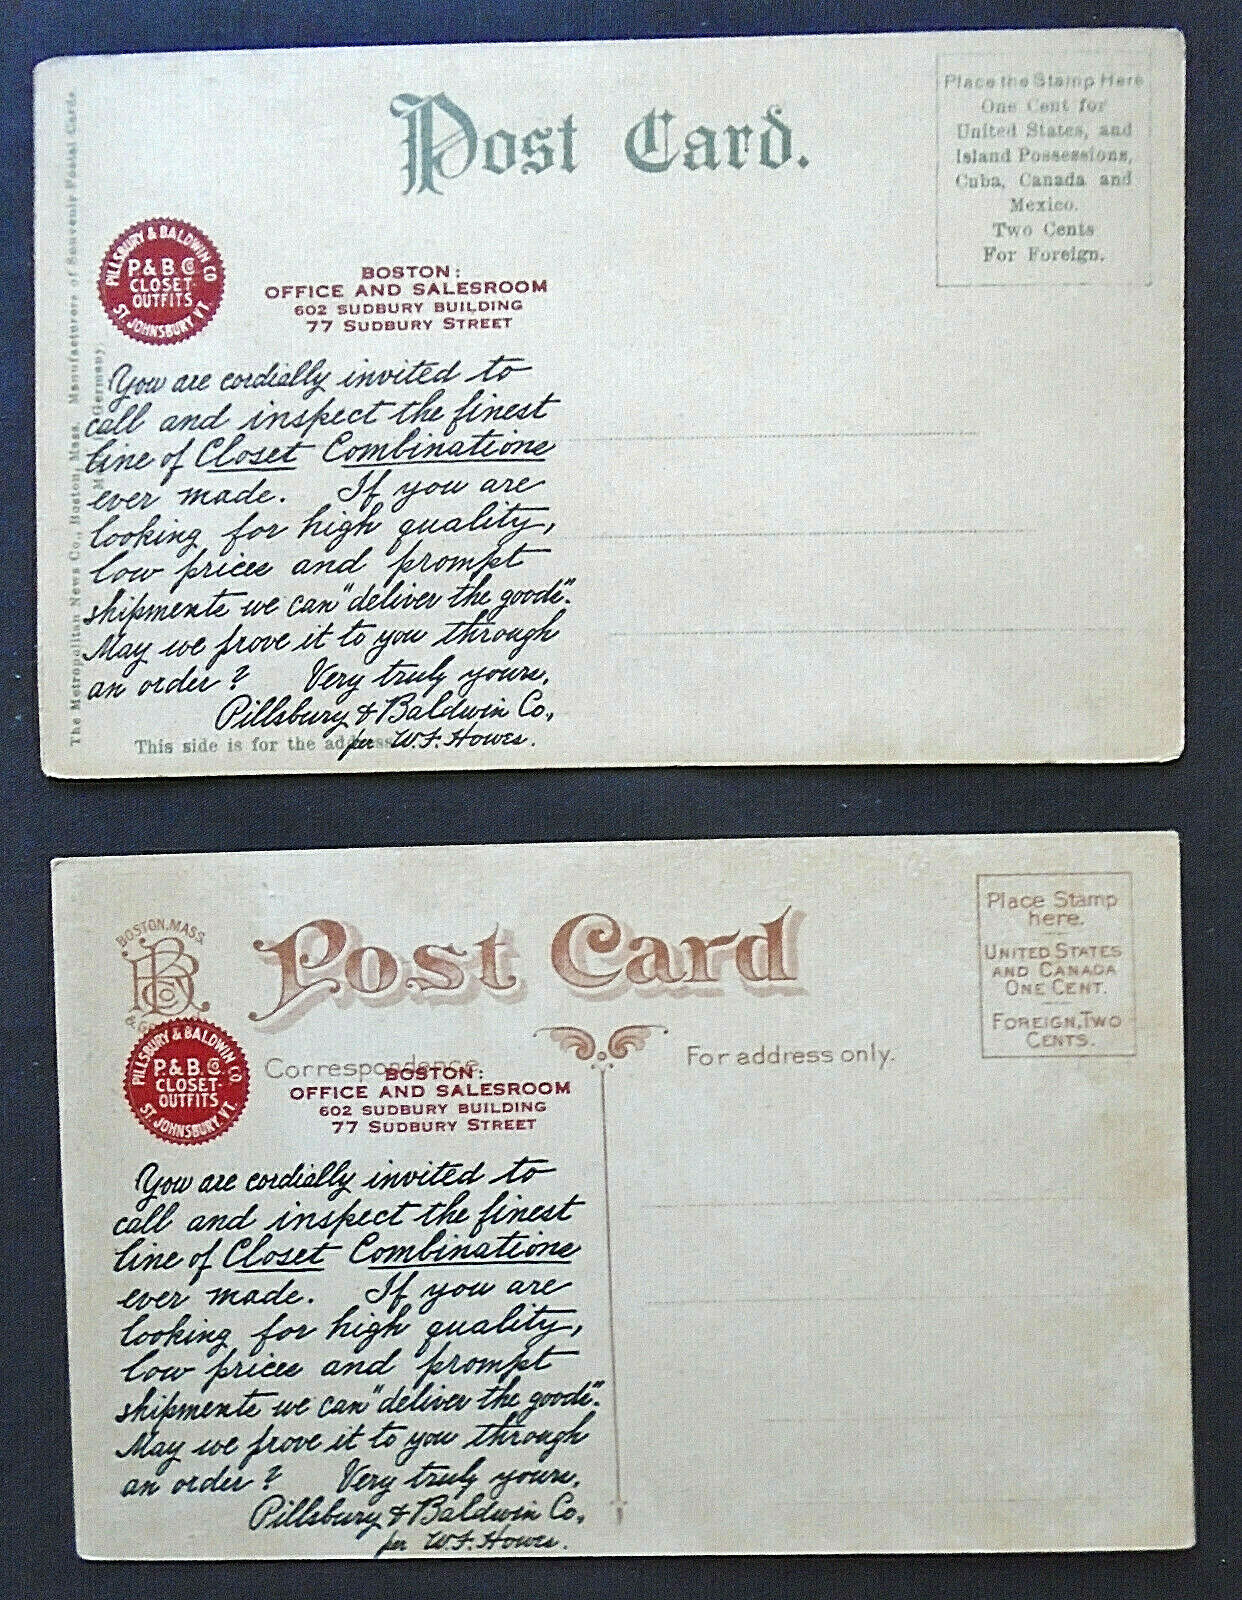 Post Card.
Place the Stamp Here
One Cent for
United States, and
Island Possessions,
Cuba, Canada and
Mexico.
Two Cents
For Foreign.
The Metropolitan News Co., Boston, Mass. Manufacturers of Souvenir Postal Cards.
Germany.
PILLSBURY & BALDWIN CO
P & B Co
CLOSET
OUTFITS
ST. JOHNSBURY, VT.
BOSTON:
OFFICE AND SALESROOM
602 SUDBURY BUILDING
77 SUDBURY STREET
You are cordially invited to
call and inspect the finest
line of Closet Combinations
ever made. If you are
looking for high quality,
low prices and prompt
shipments we can "deliver the goods".
May we prove it to you through
an order? Very truly yours,
Pillsbury & Baldwin Co.,
per W.F. Howes.
This side is for the address
BOSTON, MASS.
Post Card
Place Stamp
here.
UNITED STATES
AND CANADA
ONE CENT.
FOREIGN, TWO
CENTS.
Correspondence
For address only.
PILLSBURY & BALDWIN CO
P & B. Co
CLOSET
OUTFITS
ST. JOHNSBURY, VT.
BOSTON:
OFFICE AND SALESROOM
602 SUDBURY BUILDING
77 SUDBURY STREET
You are cordially invited to
call and inspect the finest
line of Closet Combinations
ever made. If you are
looking for high quality,
low prices and prompt
shipments we can "deliver the goods".
May we prove it to you through
an order? Very truly yours,
Pillsbury & Baldwin Co.,
per W.F. Howes.